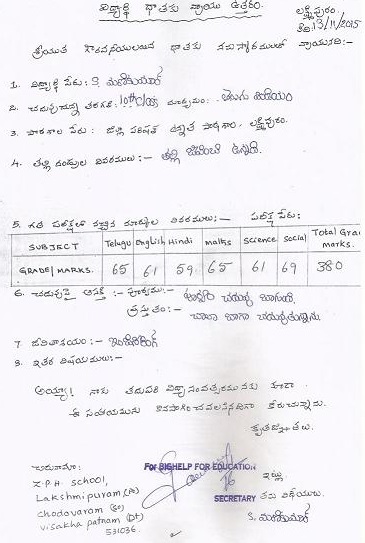 విద్యార్థి దాతకు వ్రాయు ఉత్తరం.
లక్ష్మీపురం.
తేది 13/11/2015
శ్రీయుత గౌరవనీయులయిన దాతకు నమస్కారములతో వ్రాయునది:-
1. విద్యార్థి పేరు: S. మణికుమార్
2. చదువుచున్న తరగతి: 10th Class మాధ్యమం: తెలుగు మీడియం
3. పాఠశాల పేరు: జిల్లా పరిషత్ ఉన్నత పాఠశాల, లక్ష్మీపురం.
4. తల్లి దండ్రుల వివరములు:- తల్లి
5. గత పరీక్షలో వచ్చిన మార్కుల వివరములు:- పరీక్ష పేరు:
SUBJECT Telugu English Hindi maths science social Total Grade marks.
GRADE/MARKS. 65 61 59 65 61 69 380
6. చదువుపై ఆసక్తి :- పూర్వము:-
ప్రస్తుతం:- చాలా బాగా చదువుతున్నాను
7. జీవితాశయం:-
8. ఇతర విషయములు:-
అయ్యా! నాకు తదుపరి విద్యా సంవత్సరమునకు కూడా
ఈ సహాయమును కొనసాగించవలసినదిగా కోరుచున్నాను.
కృతజ్ఞతలు.
చిరునామా:
Z.P.H School,
Lakshmipuram (Po)
Chodavaram (So)
Visakha patnam (Dt)
531036.
For BIGHELP FOR EDUCATION
SECRETARY
ఇట్లు
తమ విధేయులు.
S. మణికుమార్